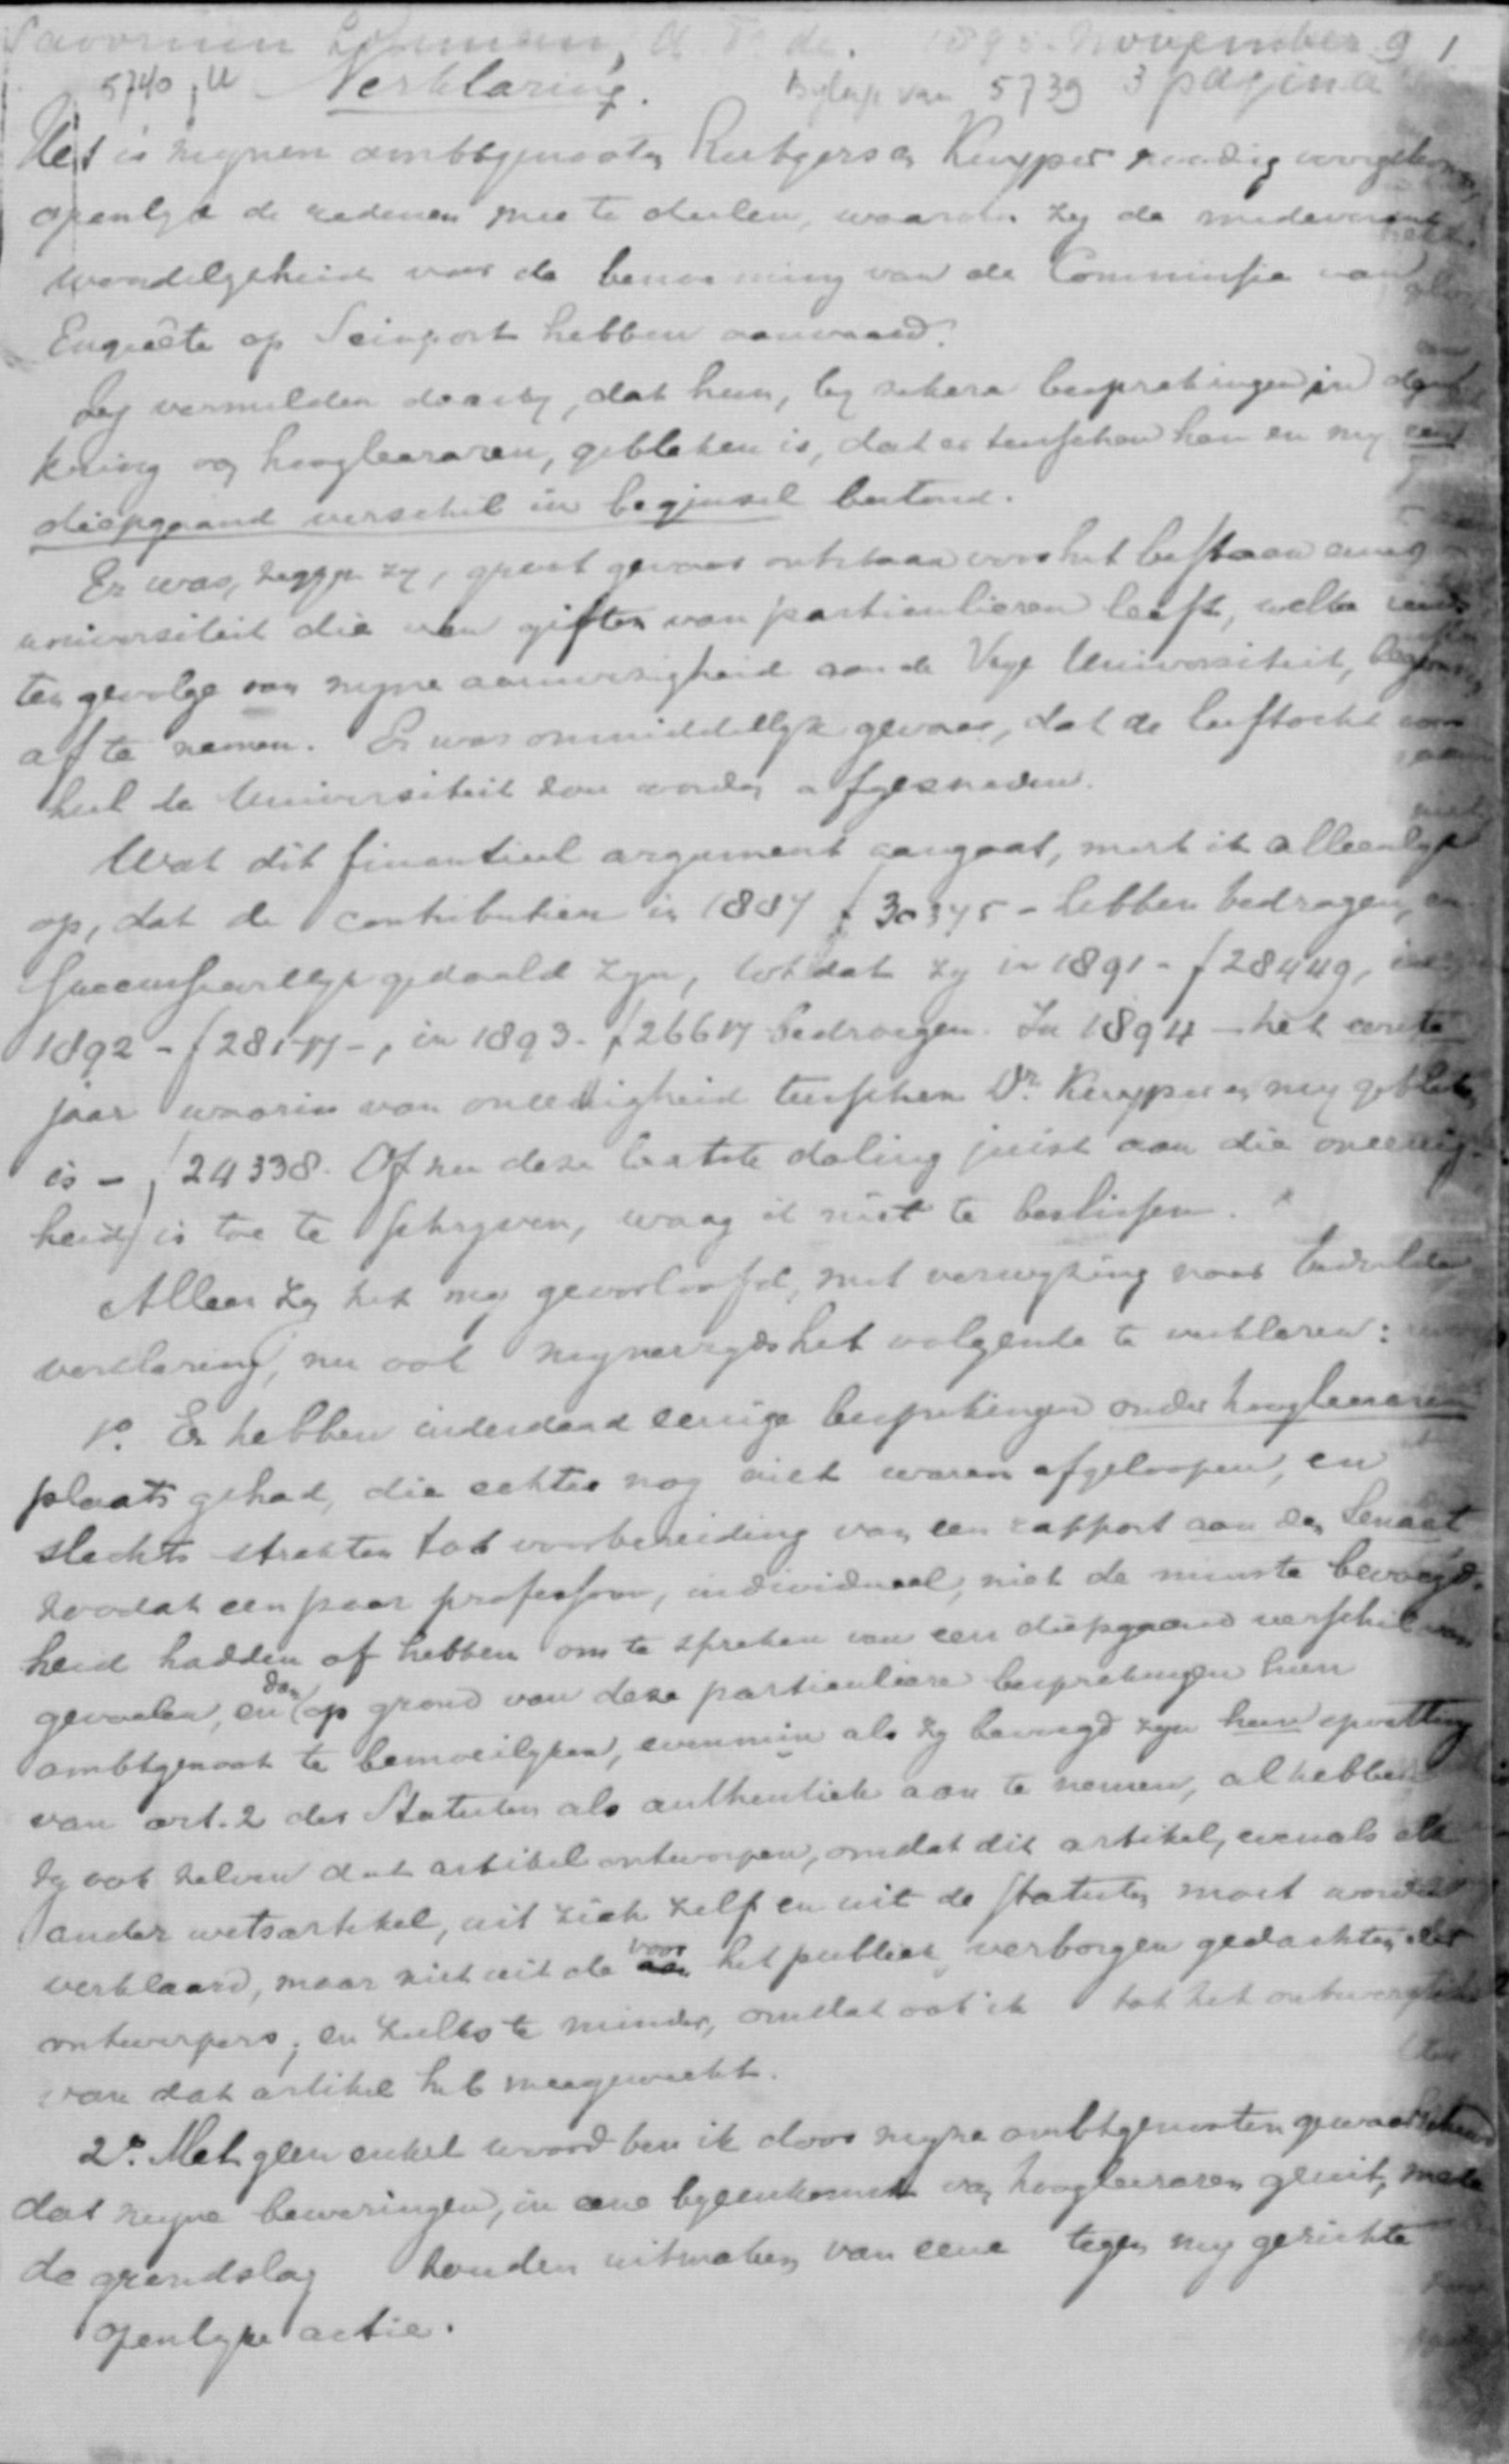 Savornin Lohman, A F de. 1895. November 9 1
5740, U Verklaring. Bijlage van 5739 3 pagina
Het is mijnen ambtgenooten Rutgers en Kuyper noodig voorgekomen,
openlijk de redenen mee te deelen, waarom zij de medeverant
woordelijkheid voor de benoeming van de Commissie van
Enquête op Seinpost hebben aanvaard.
Zij vermelden daarbij, dat hun, bij zekere besprekingen in den
kring van hoogleeraren, gebleken is, dat er tusschen hen en mij een
diepgaand verschil in beginsel bestond.
Er was, zeggen zij, groot gevaar ontstaan voor het bestaan eener
universiteit die van giften van particulieren leeft, welke reeds
ten gevolge van mijne aanwezigheid aan de Vrije Universiteit, begonnen
af te nemen. Er was onmiddellijk gevaar, dat de leeftocht van
heel de Universiteit zou worden afgesneden.
Wat dit financieel argument aangaat, merk ik alleenlijk
op, dat de contributien in 1887 f 30375 - hebben bedragen, en
successievelijk gedaald zijn, totdat zij in 1891 - f 28449, in
1892 - f 28177 -, in 1893 - f 26617 bedroegen. In 1894 - het eerste
jaar waarin van oneenigheid tusschen Dr. Kuyper en mij gebleken
is - f 24338. Of nu deze laatste daling juist aan die oneenig-
heid is toe te schrijven, waag ik niet te beslissen.
Alleen zij het mij geoorloofd, met verwijzing naar bedoelde
verklaring, nu ook mijnerzijds het volgende te verklaren:
1o. Er hebben inderdaad eenige besprekingen onder hoogleeraren
plaats gehad, die echter nog niet waren afgeloopen, en
slechts strekten tot voorbereiding van een rapport aan den Senaat
zoodat een paar professoren, individueel, niet de minste bevoegd-
heid hadden of hebben om te spreken van een diepgaand verschil van
gevoelen, en dan op grond van deze particuliere besprekingen hun
ambtgenoot te bemoeilijken, evenmin als zij bevoegd zijn hun opvatting
van art. 2 der Statuten als authentiek aan te nemen, al hebben
zij ook zelven dat artikel ontworpen, omdat dit artikel, evenals elk
ander wetsartikel, uit zich zelf en uit de statuten moet worden
verklaard, maar niet uit de voor het publiek verborgen gedachten der
ontwerpers; en zulks te minder, omdat ook ik tot het ontwerpen
van dat artikel heb meegewerkt.
2o. Met geen enkel woord ben ik door mijne ambtgenooten gewaarschuwd
dat mijne beweringen, in eene bijeenkomst van hoogleeraren geuit, mede
de grondslag zouden uitmaken van eene tegen mij gerichte
openlijke actie.